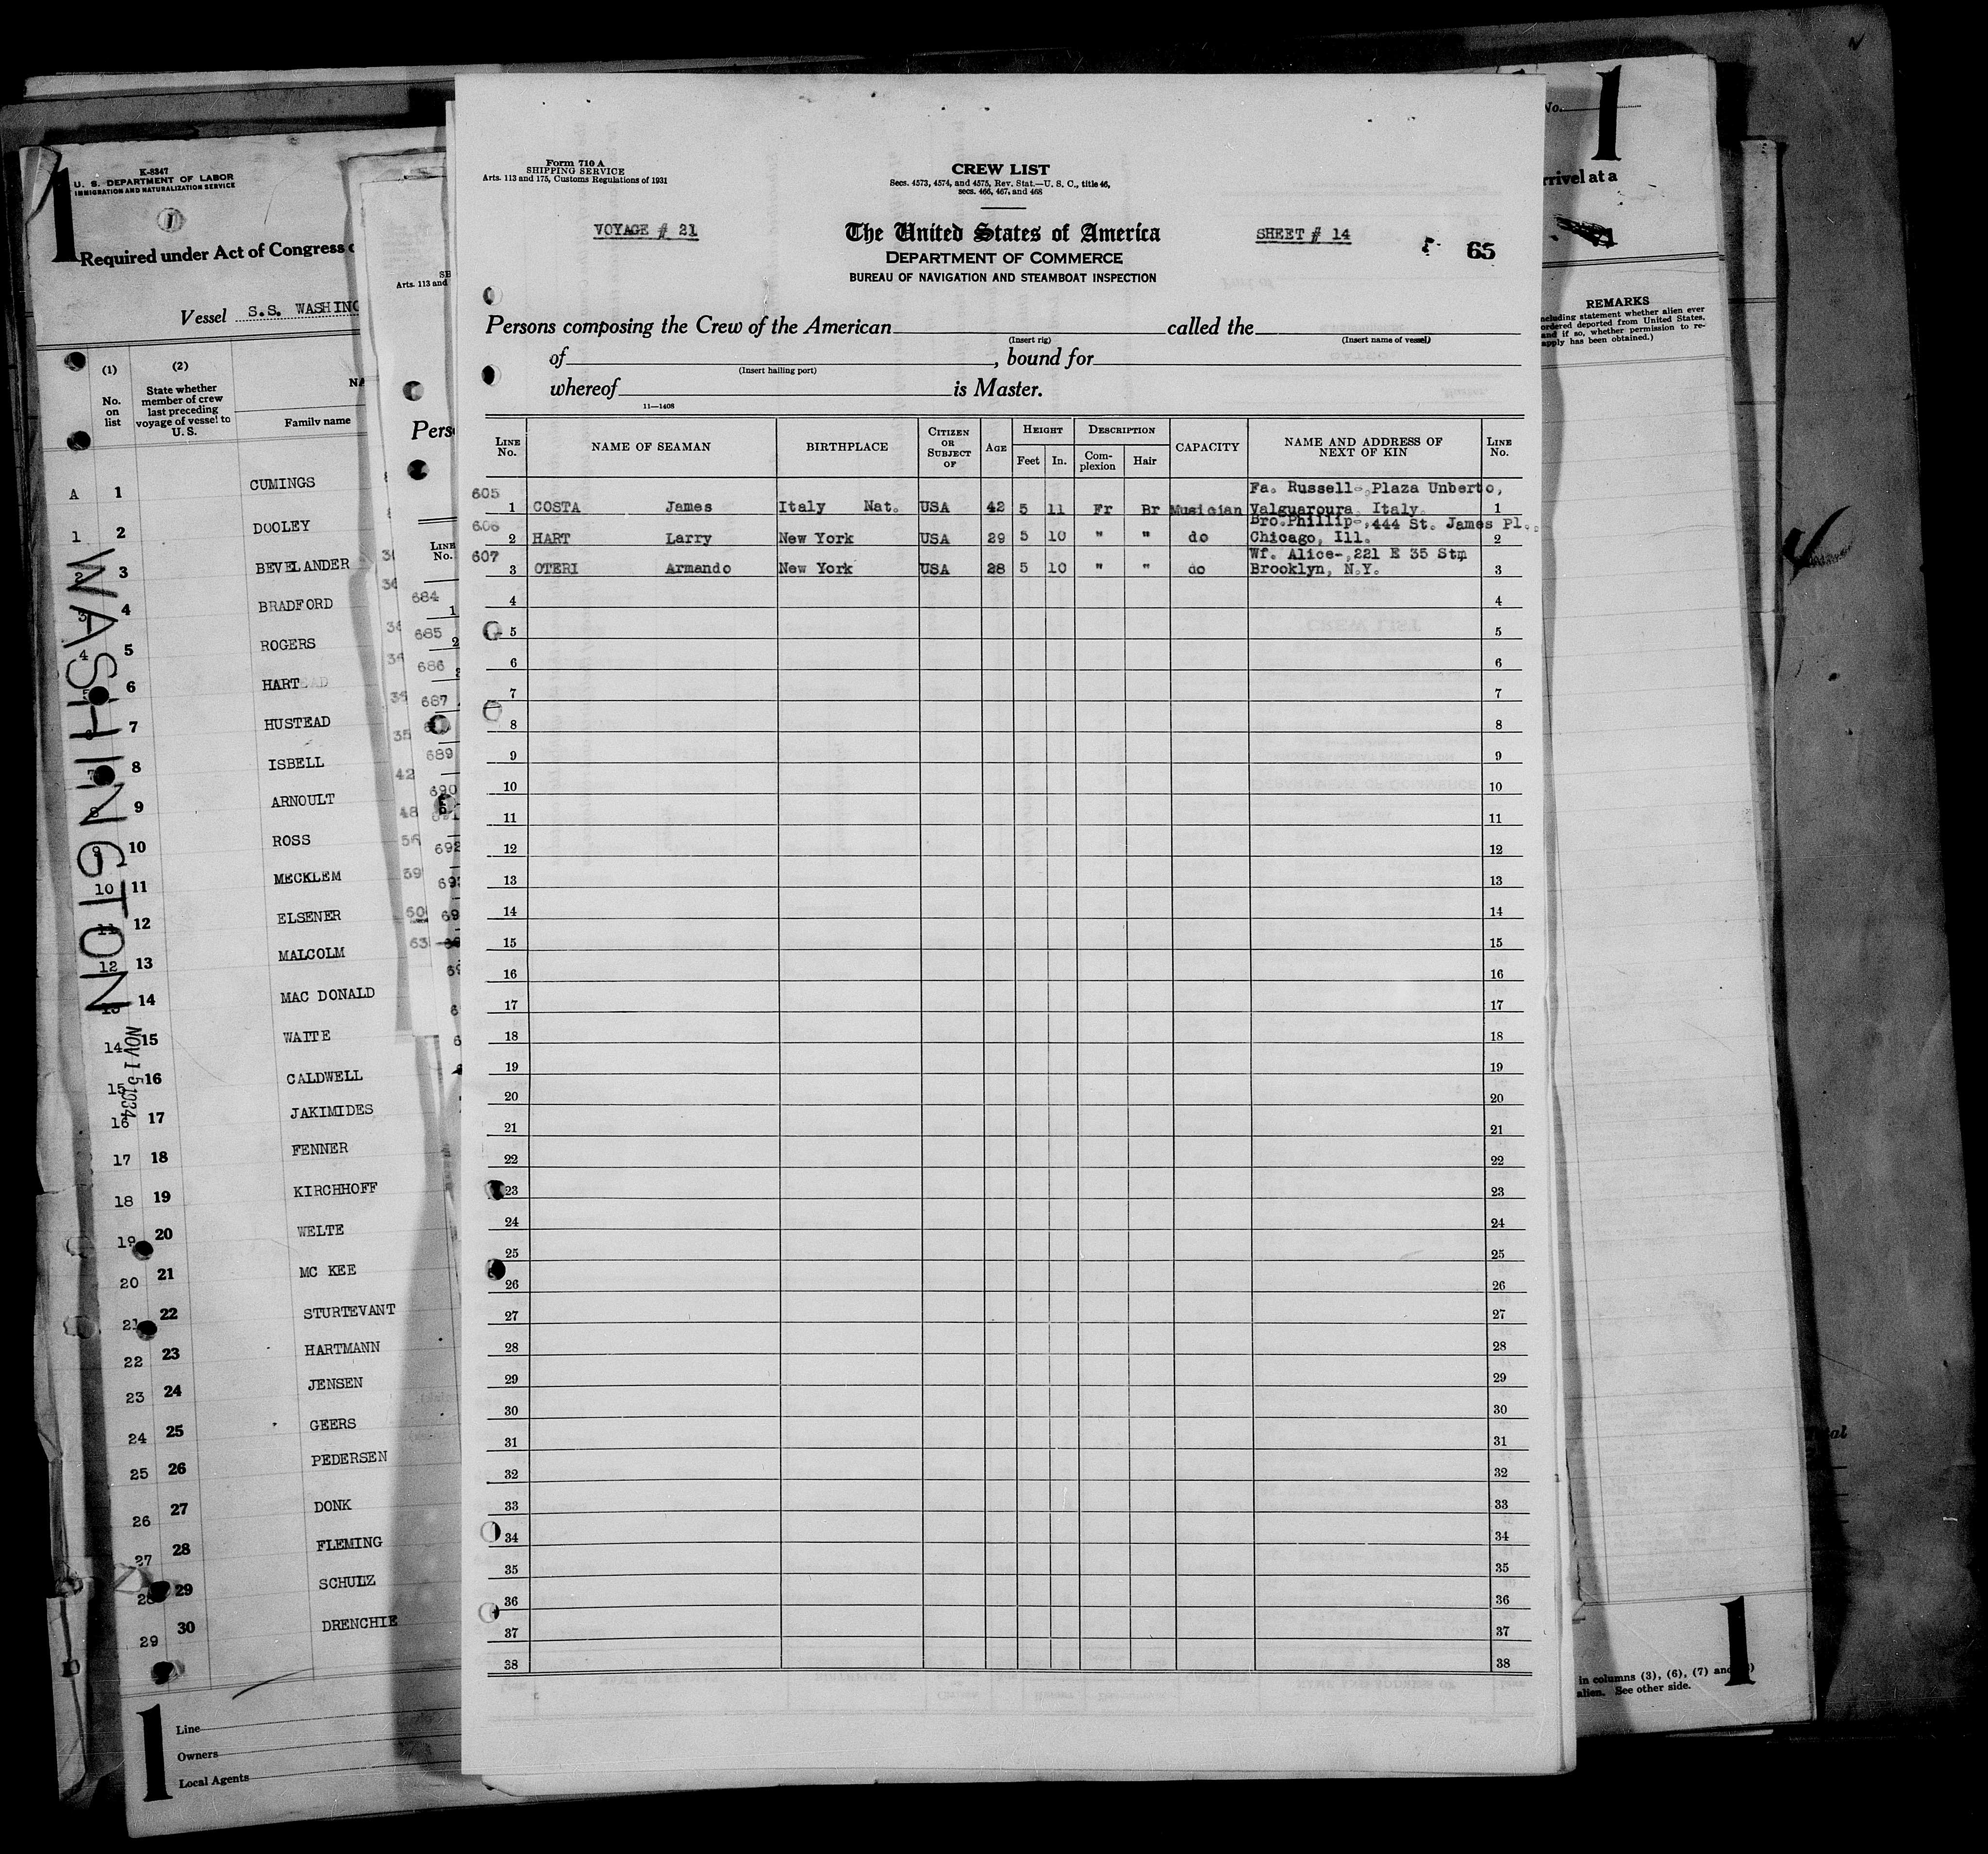 K-8347
U. S. DEPARTMENT OF LABOR
IMMIGRATION AND NATURALIZATION SERVICE
1
1
Required under Act of Congress
Vessel S.S. WASHING
(1) (2)
No. on list
State whether member of crew last preceding voyage of vessel to U. S.
NA
Family name
A 1 CUMINGS
1 2 DOOLEY
2 3 BEVELANDER
3 4 BRADFORD
4 5 ROGERS
5 6 HART
6 7 HUSTEAD
7 8 ISBELL
8 9 ARNOULT
9 10 ROSS
10 11 MECKLEM
11 12 ELSENER
12 13 MALCOLM
13 14 MAC DONALD
14 15 WAITE
15 16 CALDWELL
16 17 JAKIMIDES
17 18 FENNER
18 19 KIRCHHOFF
19 20 WELTE
20 21 MC KEE
21 22 STURTEVANT
22 23 HARTMANN
23 24 JENSEN
24 25 GEERS
25 26 PEDERSEN
26 27 DONK
27 28 FLEMING
28 29 SCHULZ
29 30 DRENCHIE
WASHINGTON
NOV 15 1934
1
Line
Owners
Local Agents
Arts. 113 and
Pers
LINE No.
684 1
685 2
686
687
689
690
691
692
Form 710 A
SHIPPING SERVICE
Arts. 113 and 175, Customs Regulations of 1931
CREW LIST
Secs. 4573, 4574, and 4575, Rev. Stat.—U. S. C., title 46,
secs. 466, 467, and 468
VOYAGE # 21
The United States of America
SHEET # 14
65
DEPARTMENT OF COMMERCE
BUREAU OF NAVIGATION AND STEAMBOAT INSPECTION
Persons composing the Crew of the American called the
(Insert rig) (Insert name of vessel)
of , bound for
(Insert hailing port)
whereof is Master.
11—1408
LINE No. NAME OF SEAMAN BIRTHPLACE CITIZEN OR SUBJECT OF AGE HEIGHT Feet In. DESCRIPTION Complexion Hair CAPACITY NAME AND ADDRESS OF NEXT OF KIN LINE No.
605 Fa. Russell-, Plaza Unberto,
1 COSTA James Italy Nat. USA 42 5 11 Fr Br Musician Valguaroura, Italy. 1
606 Bro. Phillip-, 444 St. James Pl.,
2 HART Larry New York USA 29 5 10 " " do Chicago, Ill. 2
607 Wf. Alice-, 221 E 35 Stm
3 OTERI Armando New York USA 28 5 10 " " do Brooklyn, N.Y. 3
4 4
5 5
6 6
7 7
8 8
9 9
10 10
11 11
12 12
13 13
14 14
15 15
16 16
17 17
18 18
19 19
20 20
21 21
22 22
23 23
24 24
25 25
26 26
27 27
28 28
29 29
30 30
31 31
32 32
33 33
34 34
35 35
36 36
37 37
38 38
No.
1
rrivel at a
REMARKS
ncluding statement whether alien ever
ordered deported from United States,
and if so, whether permission to re-
apply has been obtained.)
in columns (3), (6), (7) and
alien. See other side.
1